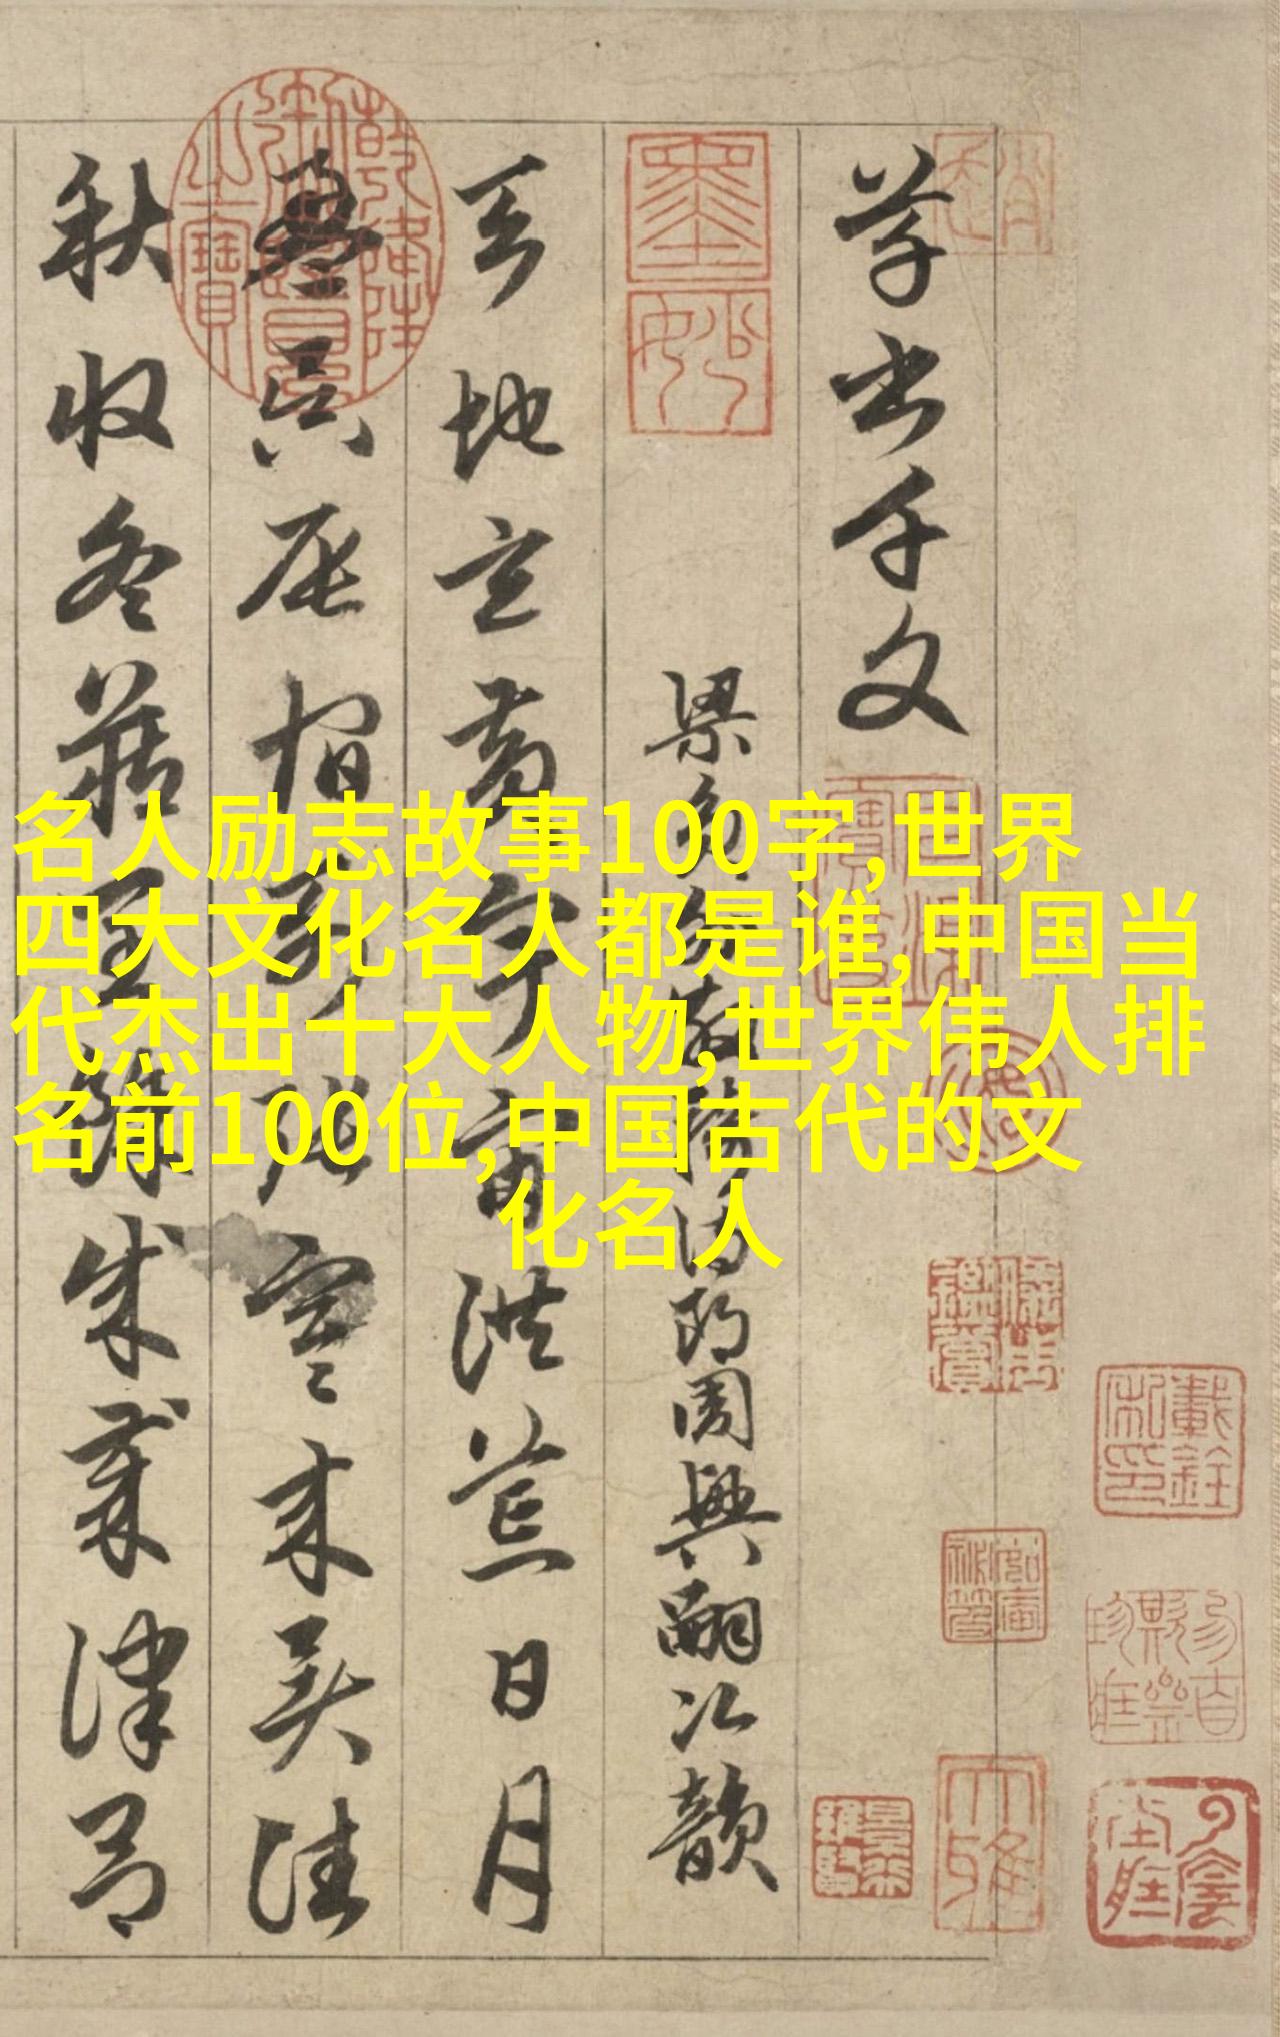 草書千文
梁員外散騎侍郎周興嗣次韻
天地玄黃宇宙洪荒日月
盈昃辰宿列張寒来暑往
秋收冬藏閏餘成歲律呂
墨妙
大雅
名人励志故事100字,世界
四大文化名人都是谁,中国当
代杰出十大人物,世界伟人排
名前100位,中国古代的文
化名人